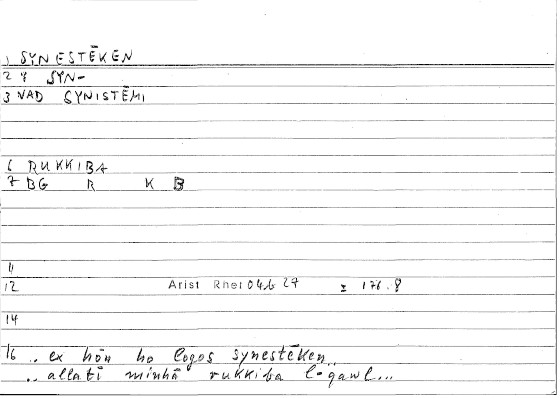 1 SYNESTĒKEN
2 4 SYN-
3 VAD SYNISTĒMI
6 RUKKIBA
7 BG R K B
11
12 Arist Rhet 04b 27 = 176.8
14
16 .. ex hōn ho logos synestēken..
.. allatī minhā rukkiba l-qawl...